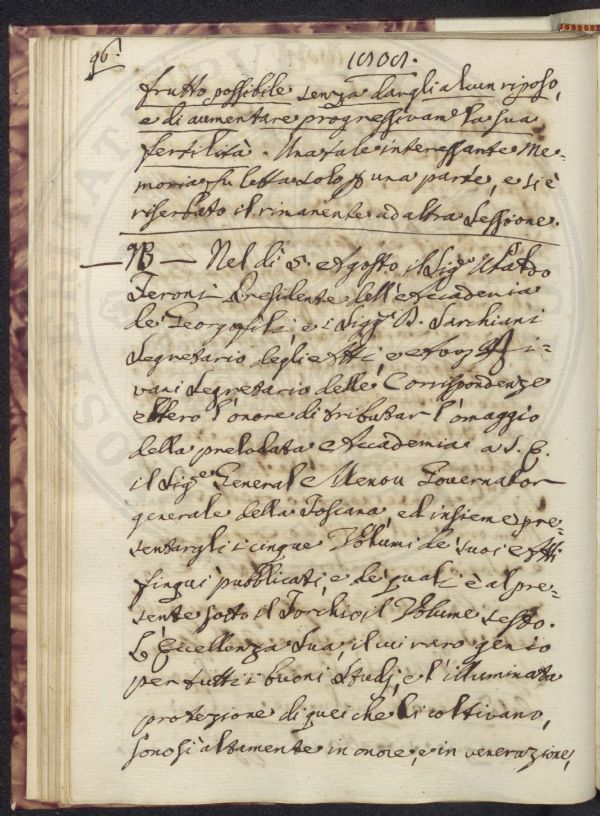 96.
1808.
frutto possibile senza dargli alcun riposo,
e di aumentare progressivam.e la sua
fertilità. Una tale interessante Me=
moria fu letta solo p una parte, e si è
riserbato il rimanente ad altra Sessione.
— NB — Nel dì 5. Agosto il Sig.r Ubaldo
Feroni Presidente dell'Accademia
de' Georgofili, e i Sigg.ri D. Sarchiani
Segretario degli Atti, e Avv.
vani Segretario delle Corrispondenze
ebbero l'onore di tributar l'omaggio
della prelodata Accademia a S. E.
il Sig.e General e Menou Governator
generale della Toscana, ed insieme pre=
sentargli i cinque Volumi de' suoi Atti
fin quì pubblicati, e de' quali è al pre=
sente sotto il Torchio il Volume sesto.
L'Eccellenza Sua, il cui raro genio
per tutti i buoni Studj, e l'illuminata
protezione di quei che li coltivano,
sono sì altamente in onore, e in venerazione,